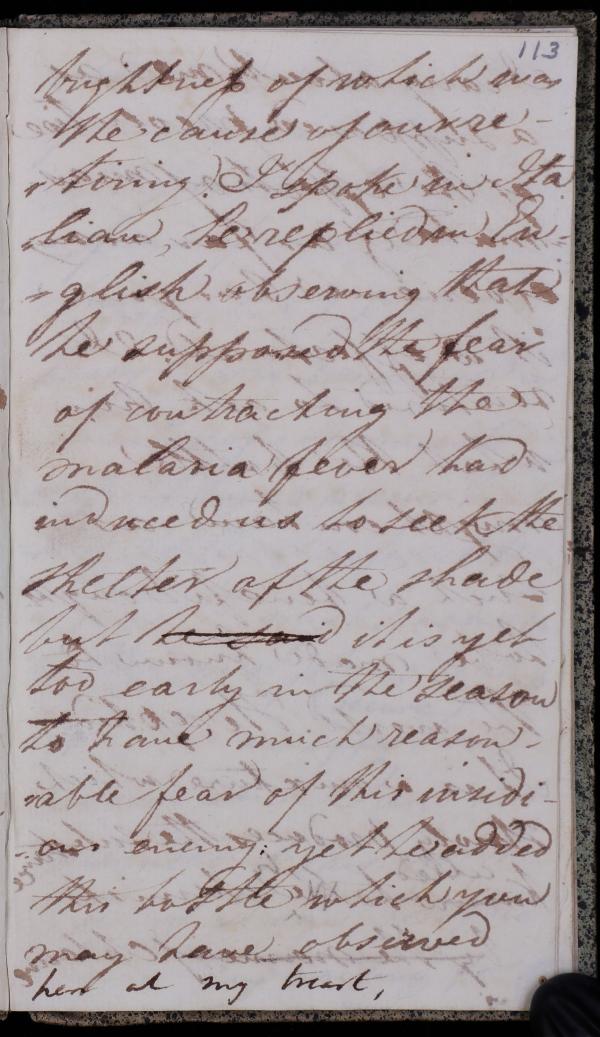 113
brightness of which was
the cause of our re-
-tiring. I spoke in Ita
-lian, he replied in En-
-glish observing that
he supposed the fear
of contracting the
malaria fever had
induced us to seek the
shelter of the shade
but he said it is yet
too early in the season
to have much reason-
-able fear of this insidi-
-ous enemy: yet he added
this bottle which you
may have observed
here at my breast,